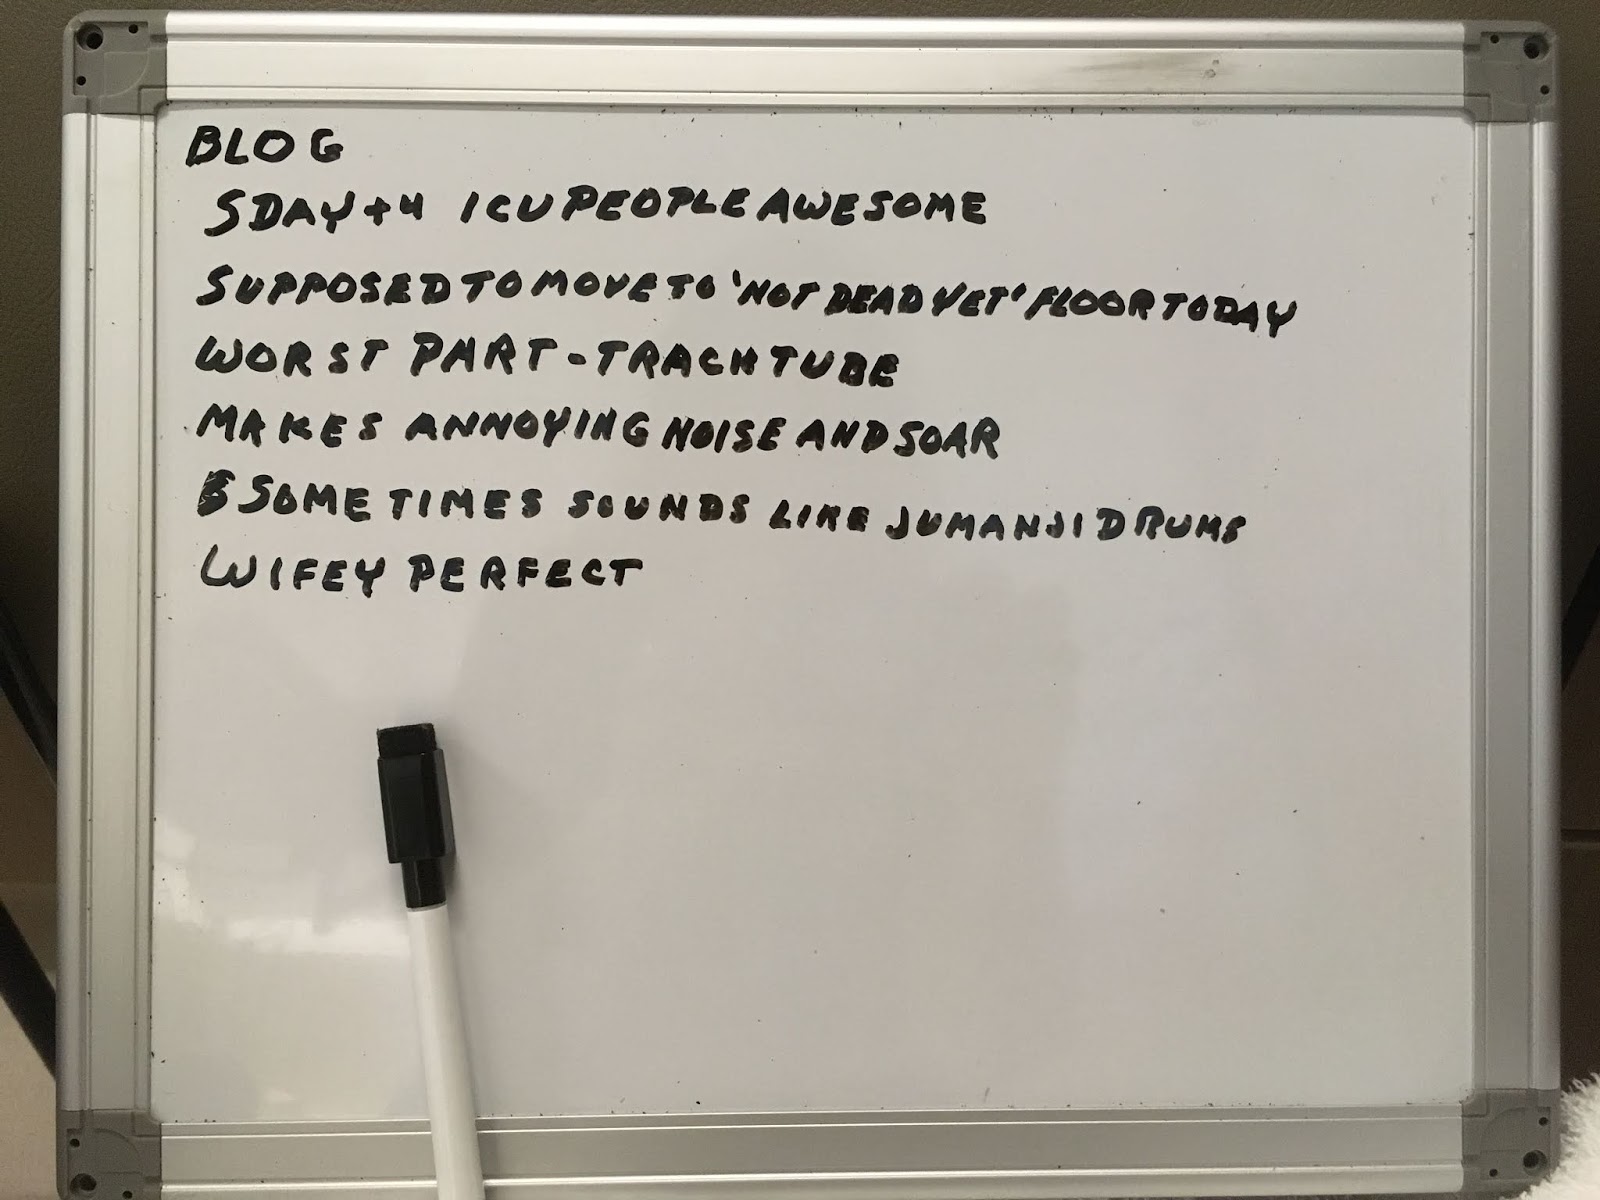 BLOG
SDAY+4 ICU PEOPLE AWESOME
SUPPOSED TO MOVE TO 'NOT DEAD YET' FLOOR TODAY
WORST PART - TRACH TUBE
MAKES ANNOYING NOISE AND SOAR
SOMETIMES SOUNDS LIKE JUMANJI DRUMS
WIFEY PERFECT